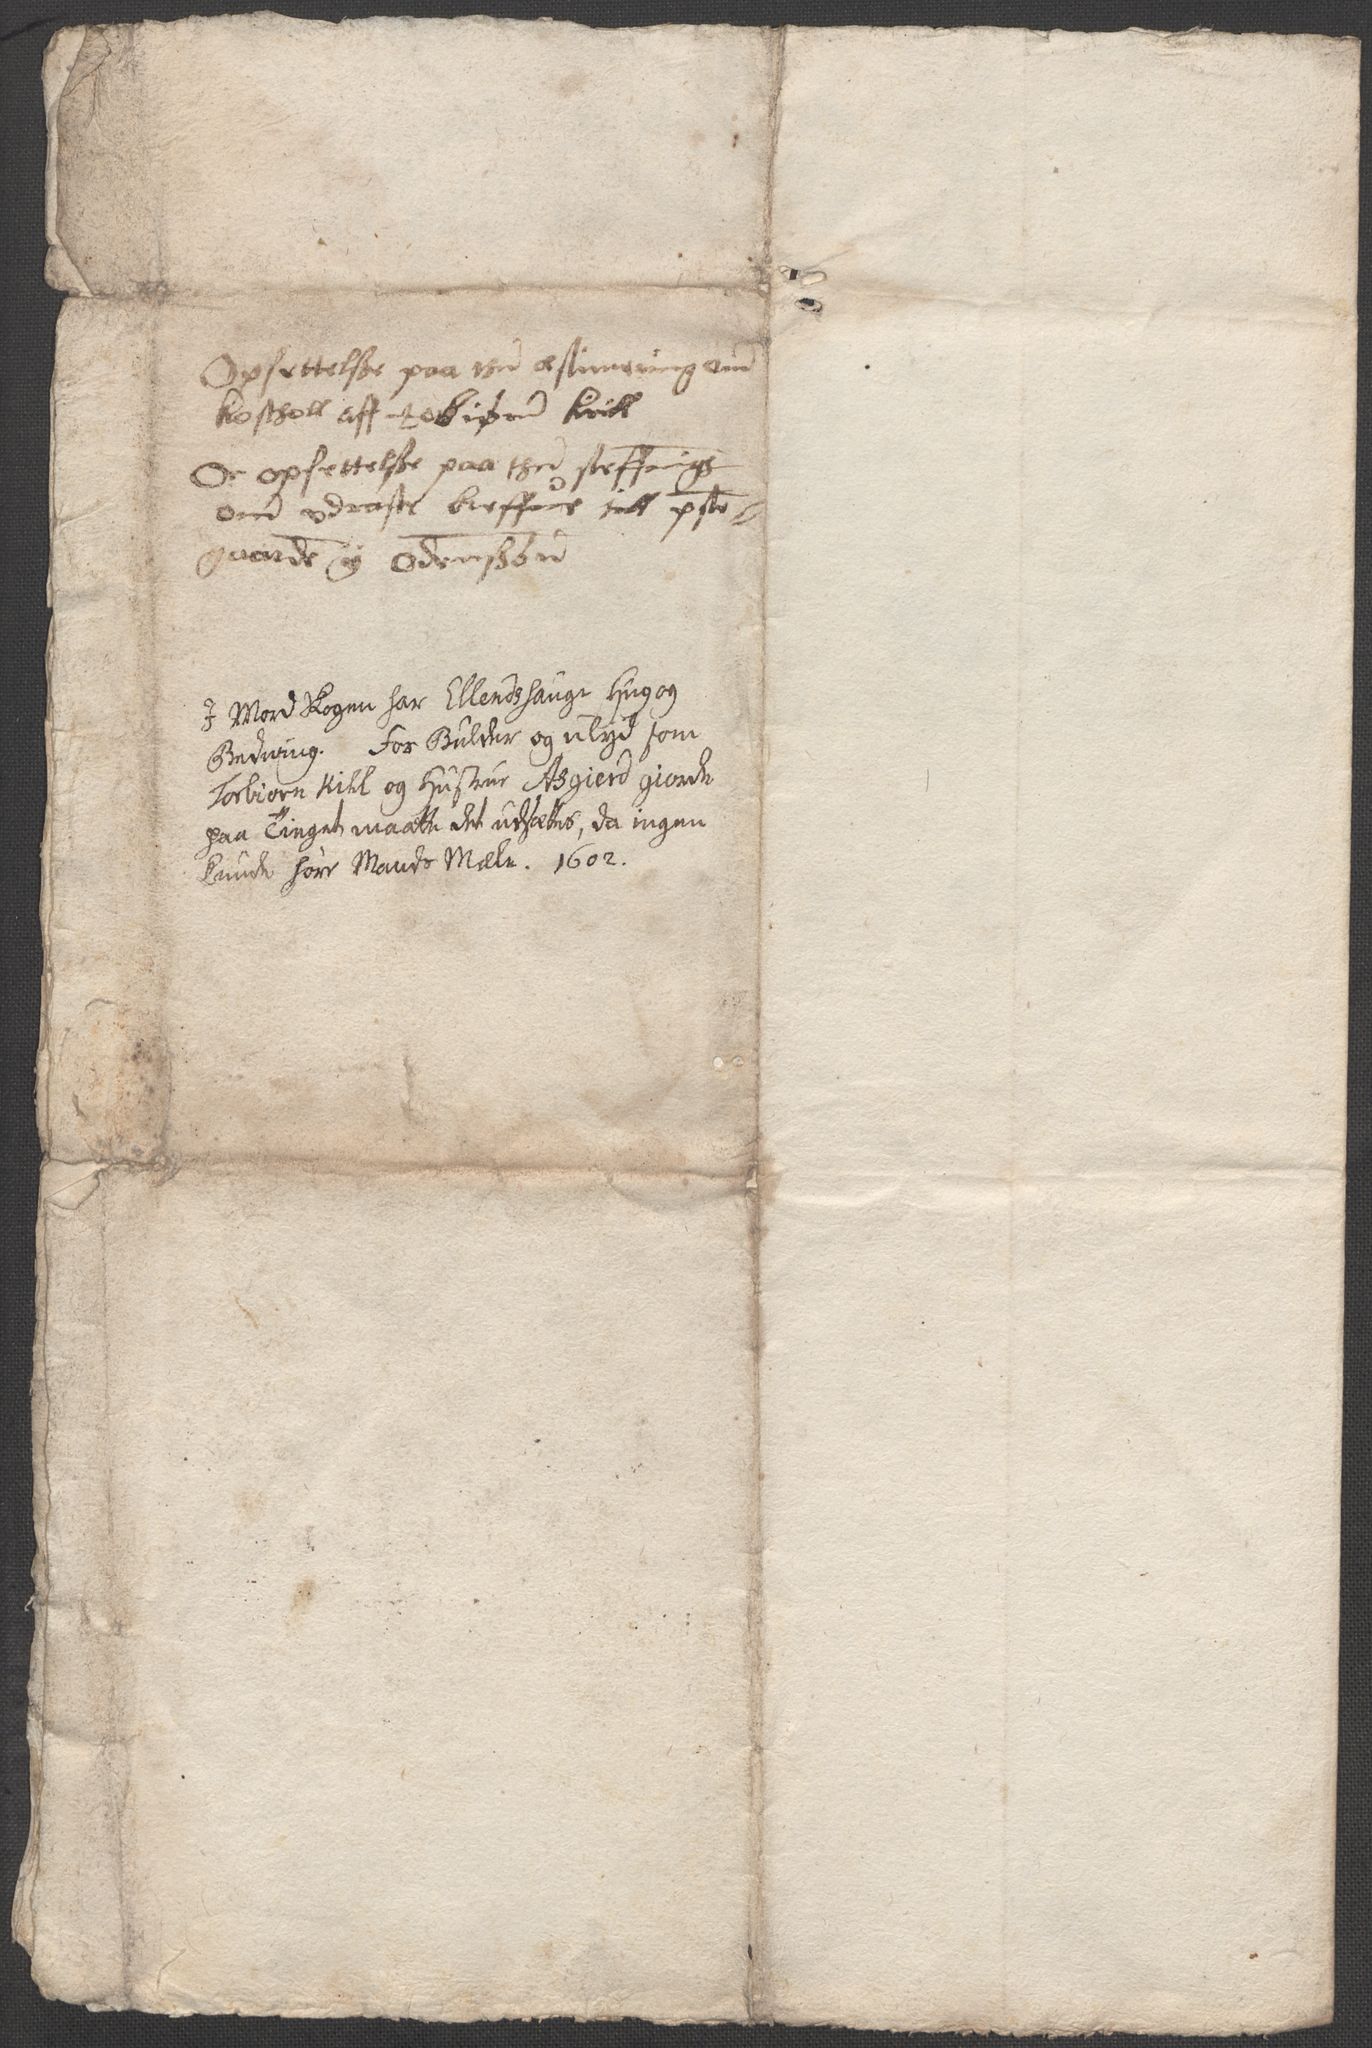 Opsettelsze paa thn̄ æstimering om̄
kostholl aff torbiørn̄ kill
Oc opsettelsze paa then̄ steffnings
om̄ vdraste breffue till preste
gaarde y Odenszøn̄
I Mordskogen har Ellendshauge Hug og
Bedwing. For Bulder og ulyd som
Torbiorn Kill og Hustrue Aszgierd giorde
paa Tinget maatte det udsættes, da ingen
kunde høre Mands Mæle. 1602.